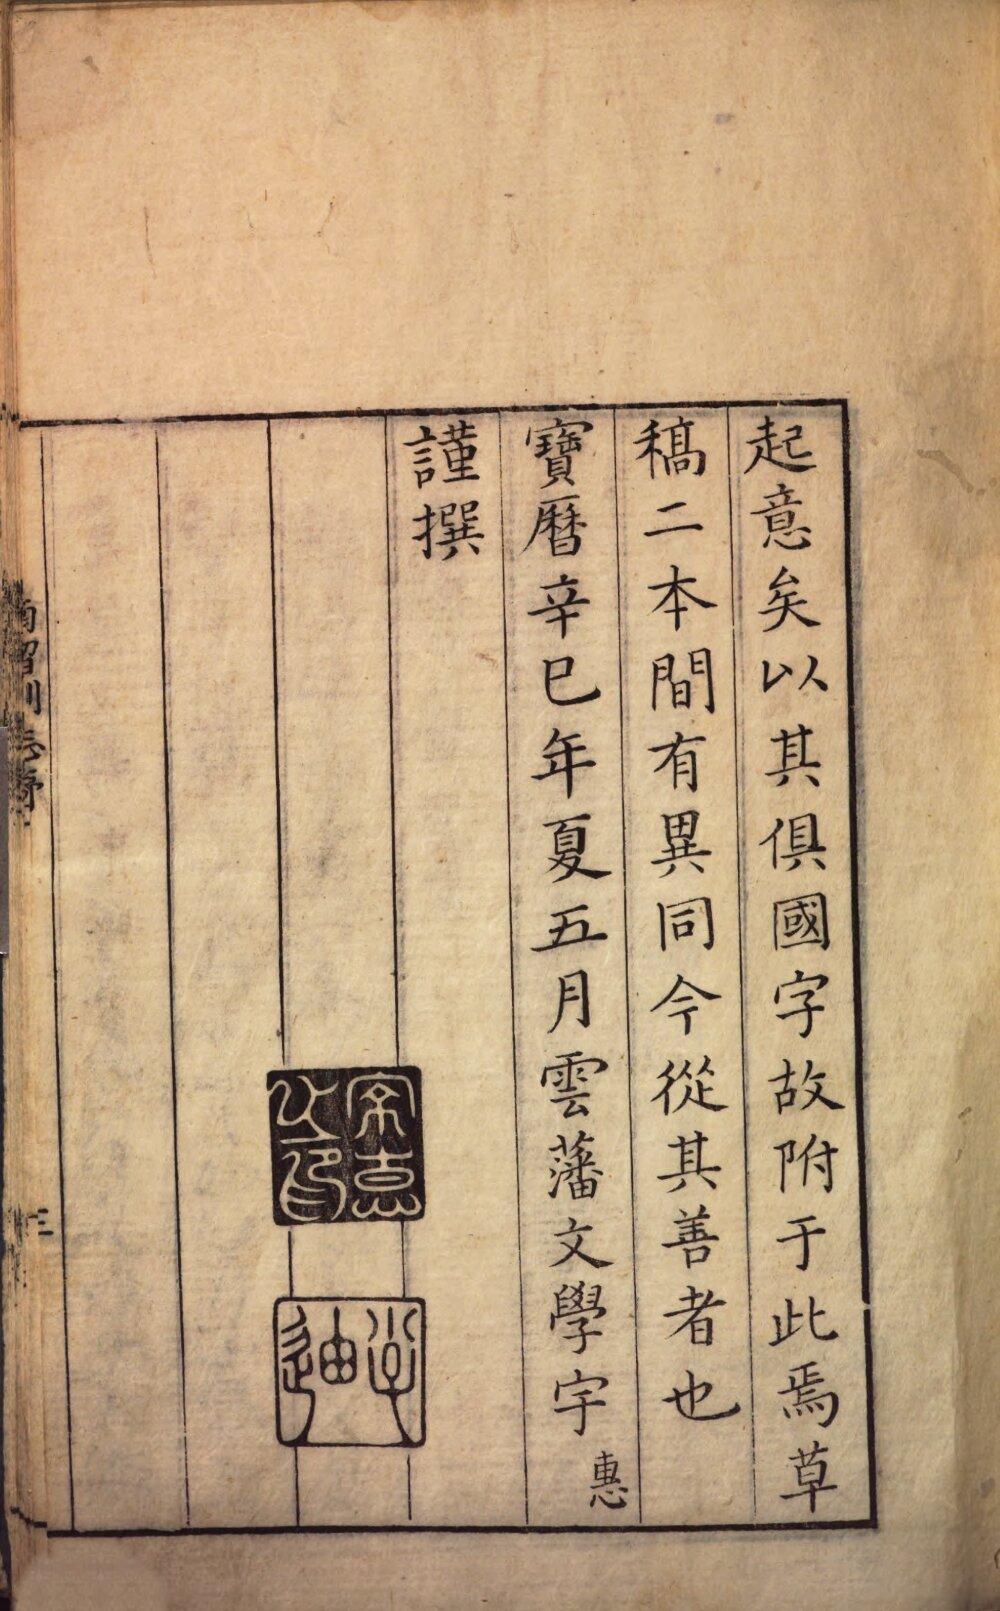 起意矣以其俱國字故附于此焉草
稿二本間有異同今從其善者也
寶曆辛巳年夏五月雲藩文學宇惠
謹撰
三